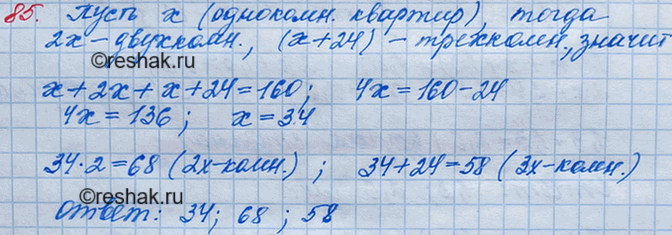 85. Пусть x (однокомн. квартир), тогда
2x - двухкомн., (x+24) - трехкомн., значит
x + 2x + x + 24 = 160; 4x = 160 - 24
4x = 136; x = 34
34·2 = 68 (2х-комн.); 34+24=58 (3х-комн.)
Ответ: 34; 68; 58
©reshak.ru